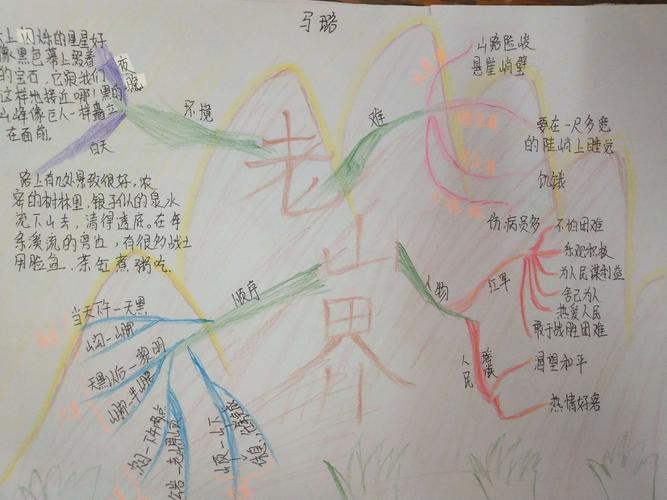 马璐
上闪烁的星星好
像黑色幕上缀着
的宝石,它跟我们
这样地接近哪!黑的
山峰像巨人一样矗立
在面前
夜晚
环境
白天
路上有几处景致很好,浓
密的树林里,银子似的泉水
流下山去,清得透底。在每
条溪流的旁边,有很多战士
用脸盆、茶缸煮粥吃
老山界
难
山路险峻
悬崖峭壁
要在一尺多宽
的陡峭上睡觉
饥饿
伤病员多
人物
红军
不怕困难
乐观积极
为人民谋利益
舍己为人
热爱人民
敢于战胜困难
人民
渴望和平
热情好客
顺序
当天下午—天黑
山沟—山脚
天黑以后—黎明
山脚—半山腰
山顶—山下